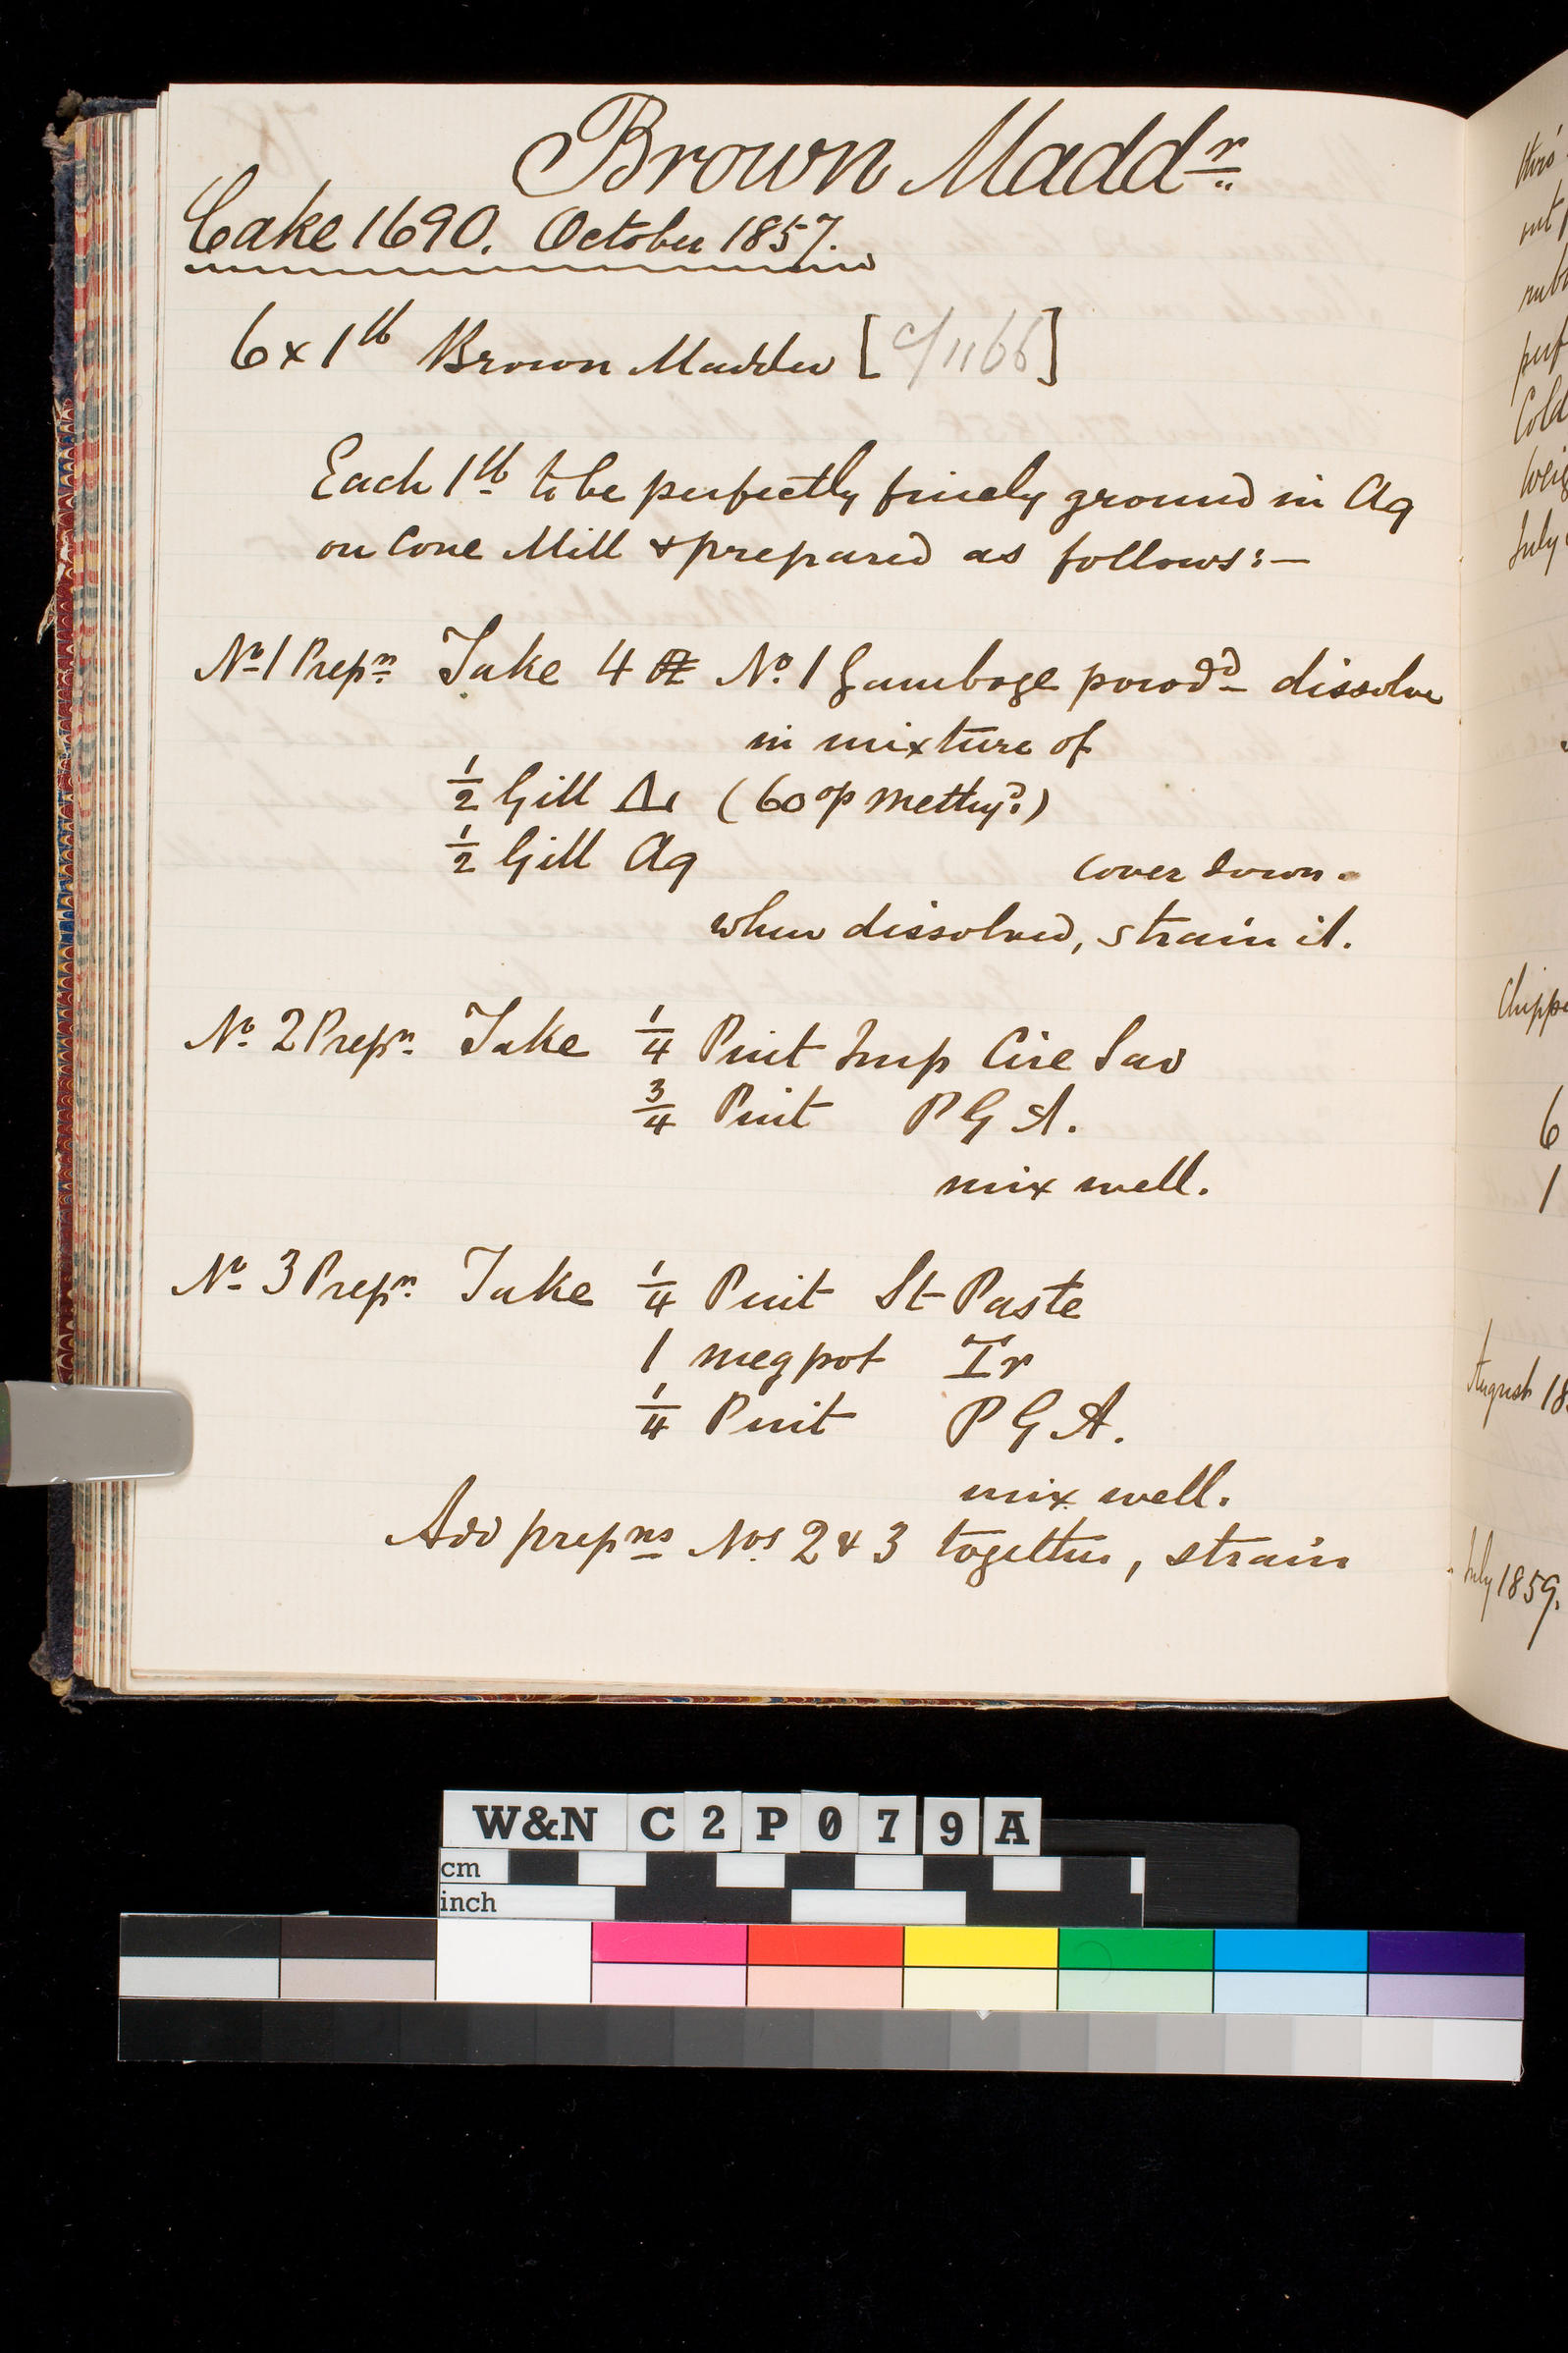 Brown Maddr
Cake 1690. October 1857.
6 x 1 lb Brown Madder [c/1166]
Each 1 lb to be perfectly finely ground in Aq
on Cone Mill & prepared as follows:—
No 1 Prepn Take 4 oz No. 1 Gamboge powdd dissolve
in mixture of
1/2 Gill (60 op Methyd.)
1/2 Gill Aq
cover down.
when dissolved, strain it.
No. 2 Prepn. Take 1/4 Pint Imp Cire Sav
3/4 Pint P G A.
mix well.
No 3 Prepn. Take 1/4 Pint St Paste
1 megpot Tr
1/4 Pint P G A.
mix well.
Add prepns Nos 2 & 3 together, strain
Cold
July
Chipp
6
1
August 18
July 1859.
W&N C2P079A
cm
inch